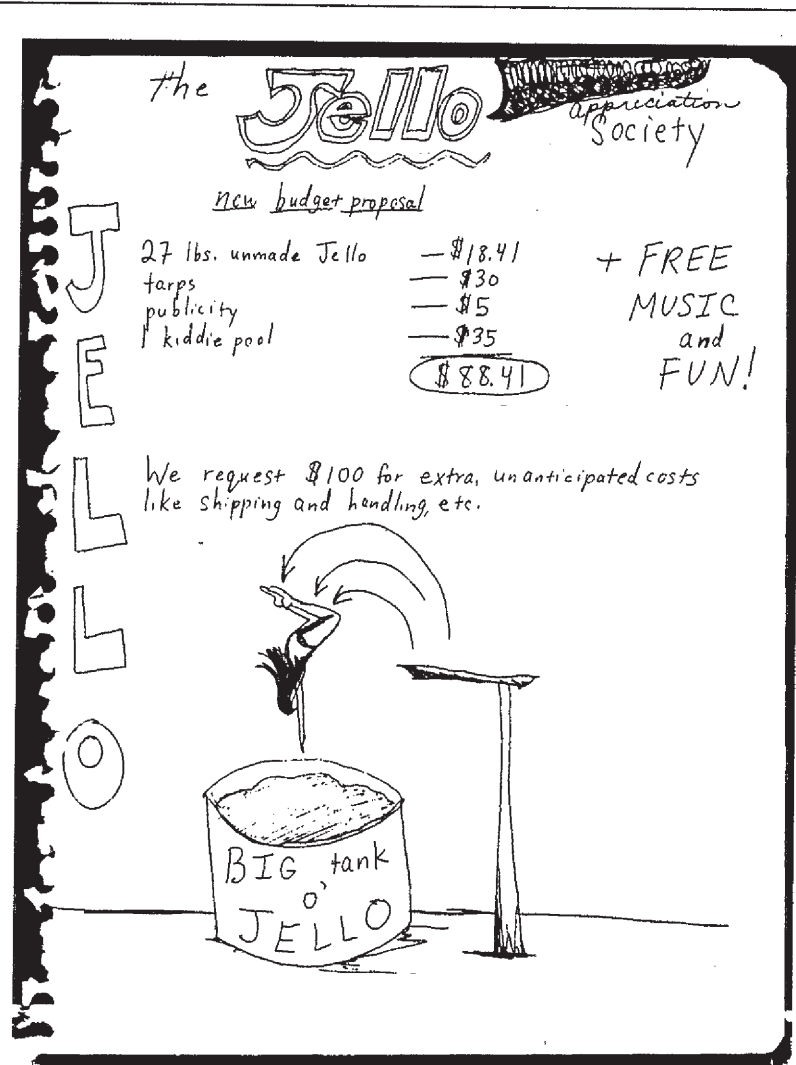 the Jello appreciation
Society
new budget proposal
J
E
L
L
O
27 lbs. unmade Jello — $18.41
tarps — $30
publicity — $5
1 kiddie pool — $35
$88.41
+ FREE
MUSIC
and
FUN!
We request $100 for extra, unanticipated costs
like shipping and handling, etc.
BIG tank
o'
JELLO